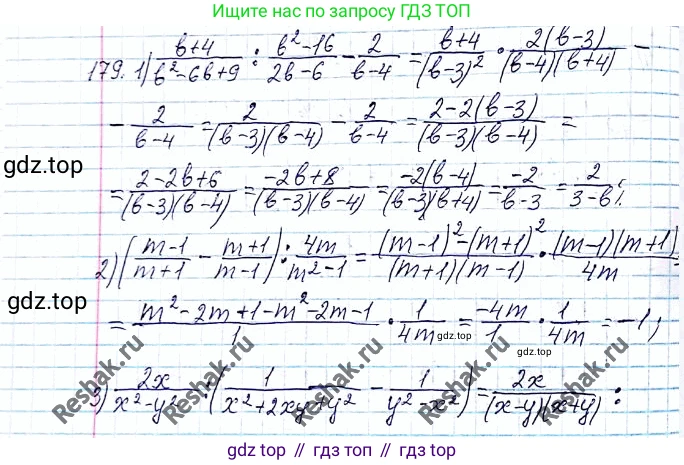 Ищите нас по запросу
Открывай ГДЗ ТОП
179. 1) (в+4)/(в²-6в+9) : (в²-16)/(2в-6) - 2/(в-4) = (в+4)/(в-3)² · 2(в-3)/((в-4)(в+4)) -
- 2/(в-4) = 2/((в-3)(в-4)) - 2/(в-4) = (2-2(в-3))/((в-3)(в-4)) =
gdz.top
= (2-2в+6)/((в-3)(в-4)) = (-2в+8)/((в-3)(в-4)) = -2(в-4)/((в-3)(в+4)) = -2/(в-3) = 2/(3-в);
2) ((m-1)/(m+1) - (m+1)/(m-1)) : 4m/(m²-1) = ((m-1)²-(m+1)²)/((m+1)(m-1)) · (m-1)(m+1)/4m =
gdz.top
= (m²-2m+1-m²-2m-1)/1 · 1/4m = -4m/1 · 1/4m = -1;
gdz.top
gdz.top
3) 2x/(x²-y²) : (1/(x²+2xy+y²) - 1/(y²-x²)) = 2x/((x-y)(x+y)) :
Reshak.ru
Reshak.ru
Reshak.ru
Reshak.ru
gdz.top // гдз.топ // gdz.top